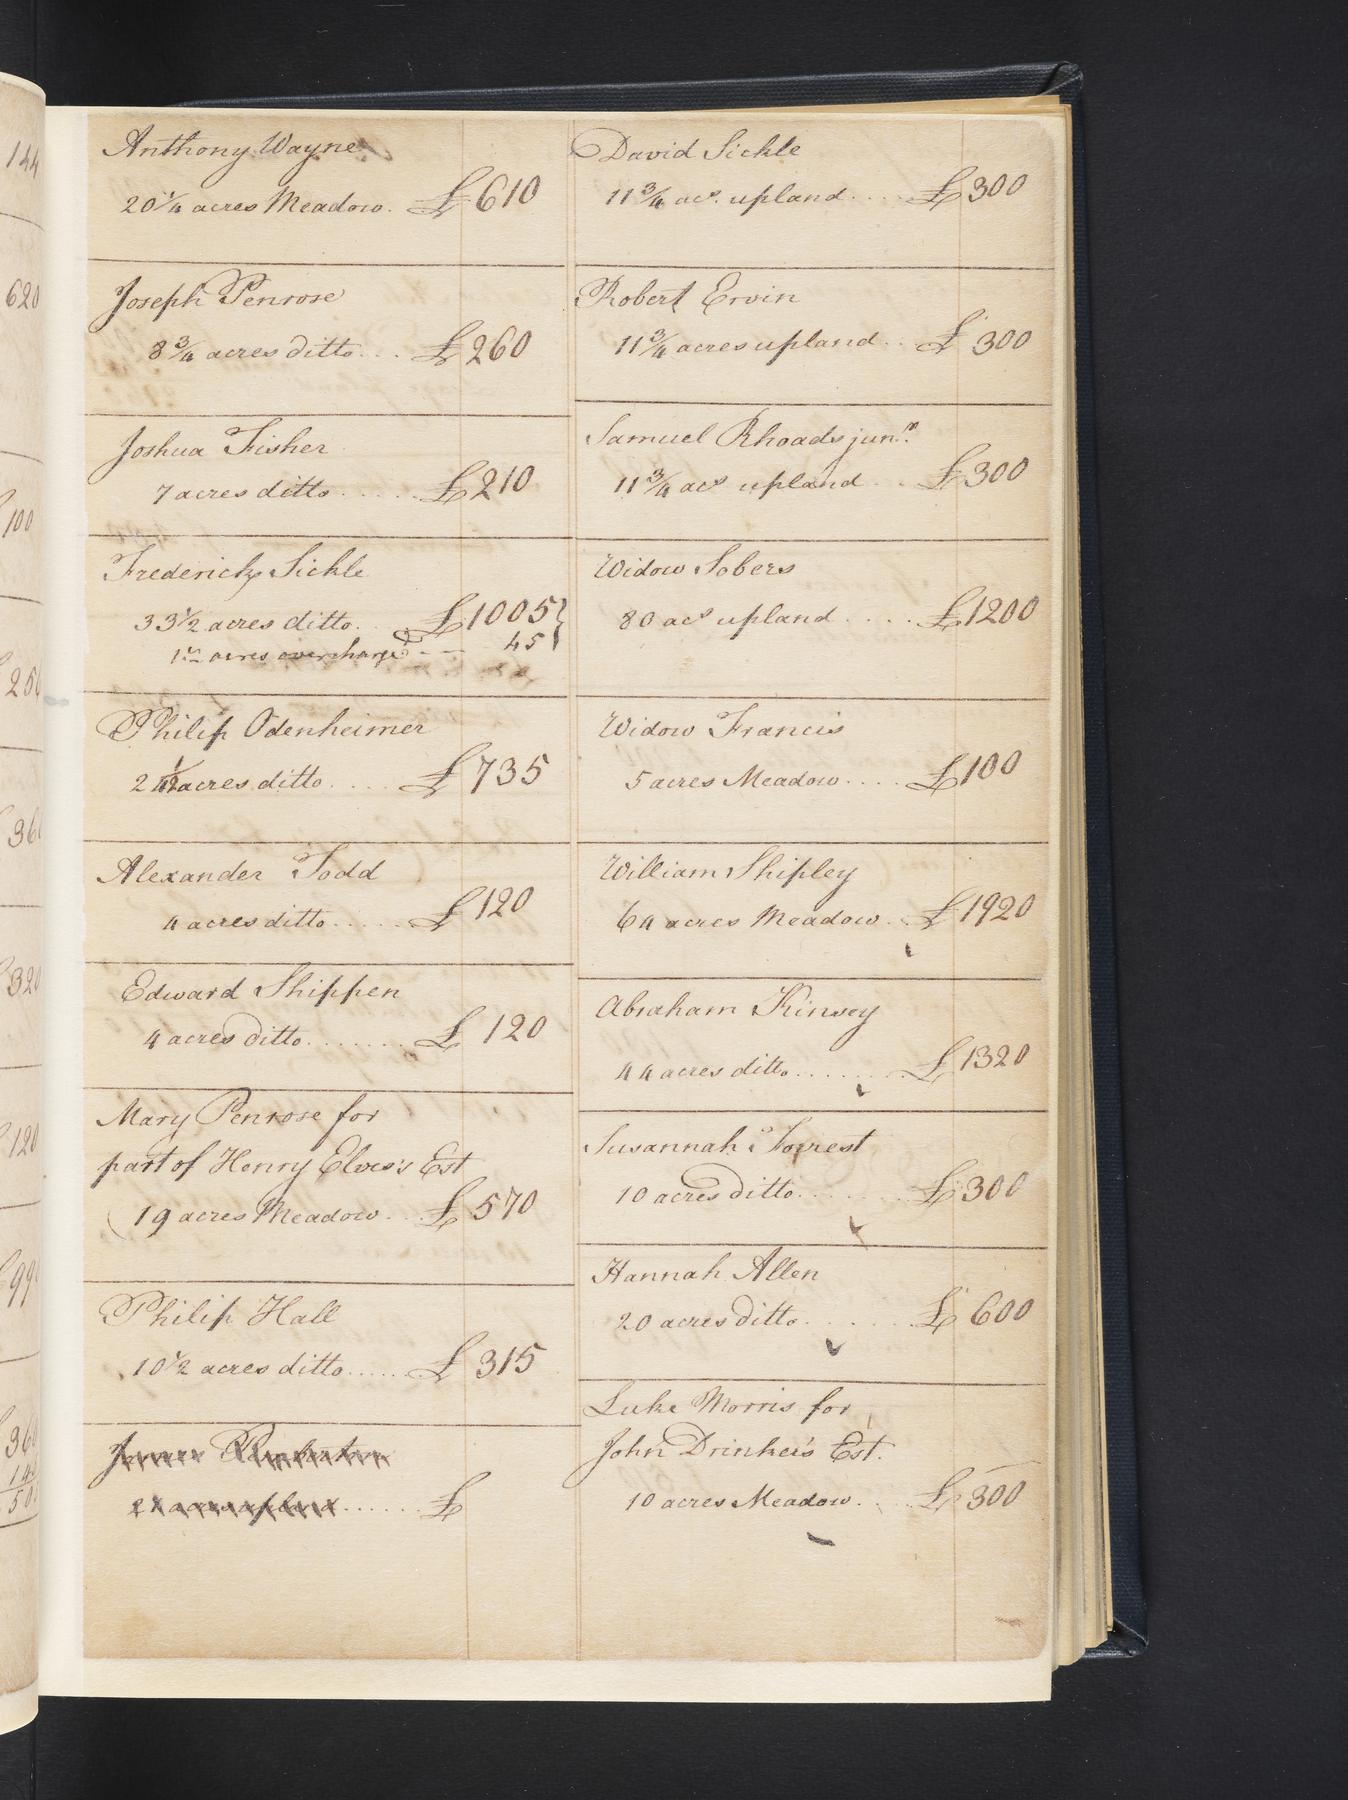 144
620
100
250
360
320
120
990
360
Anthony Wayne
20 1/4 acres Meadow. £ 610
Joseph Penrose
8 3/4 acres ditto... £ 260
Joshua Fisher
7 acres ditto..... £ 210
Frederick Sickle
33 1/2 acres ditto. £ 1005
acres overcharged -- 45
Philip Odenheimer
24 1/2 acres ditto.... £ 735
Alexander Todd
4 acres ditto..... £ 120
Edward Shippen
4 acres ditto....... £ 120
Mary Penrose for
part of Henry Elves's Est
19 acres Meadow.. £ 570
Philip Hall
10 1/2 acres ditto..... £ 315
James Pemberton
acres upland...... £
David Sickle
11 3/4 acs. upland.... £ 300
Robert Ervin
11 3/4 acres upland.. £ 300
Samuel Rhoads junr.
11 3/4 acs upland... £ 300
Widow Sobers
80 acs upland.... £ 1200
Widow Francis
5 acres Meadow.... £ 100
William Shipley
64 acres Meadow.. £ 1920
Abraham Kinsey
44 acres ditto........ £ 1320
Susannah Forrest
10 acres ditto....... £ 300
Hannah Allen
20 acres ditto....... £ 600
Luke Morris for
John Drinker's Est.
10 acres Meadow... £ 300